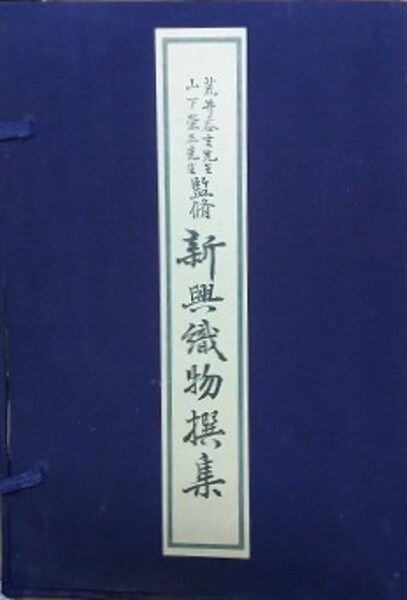 荒井泰雲先生
山下榮三先生
監脩
新興織物撰集